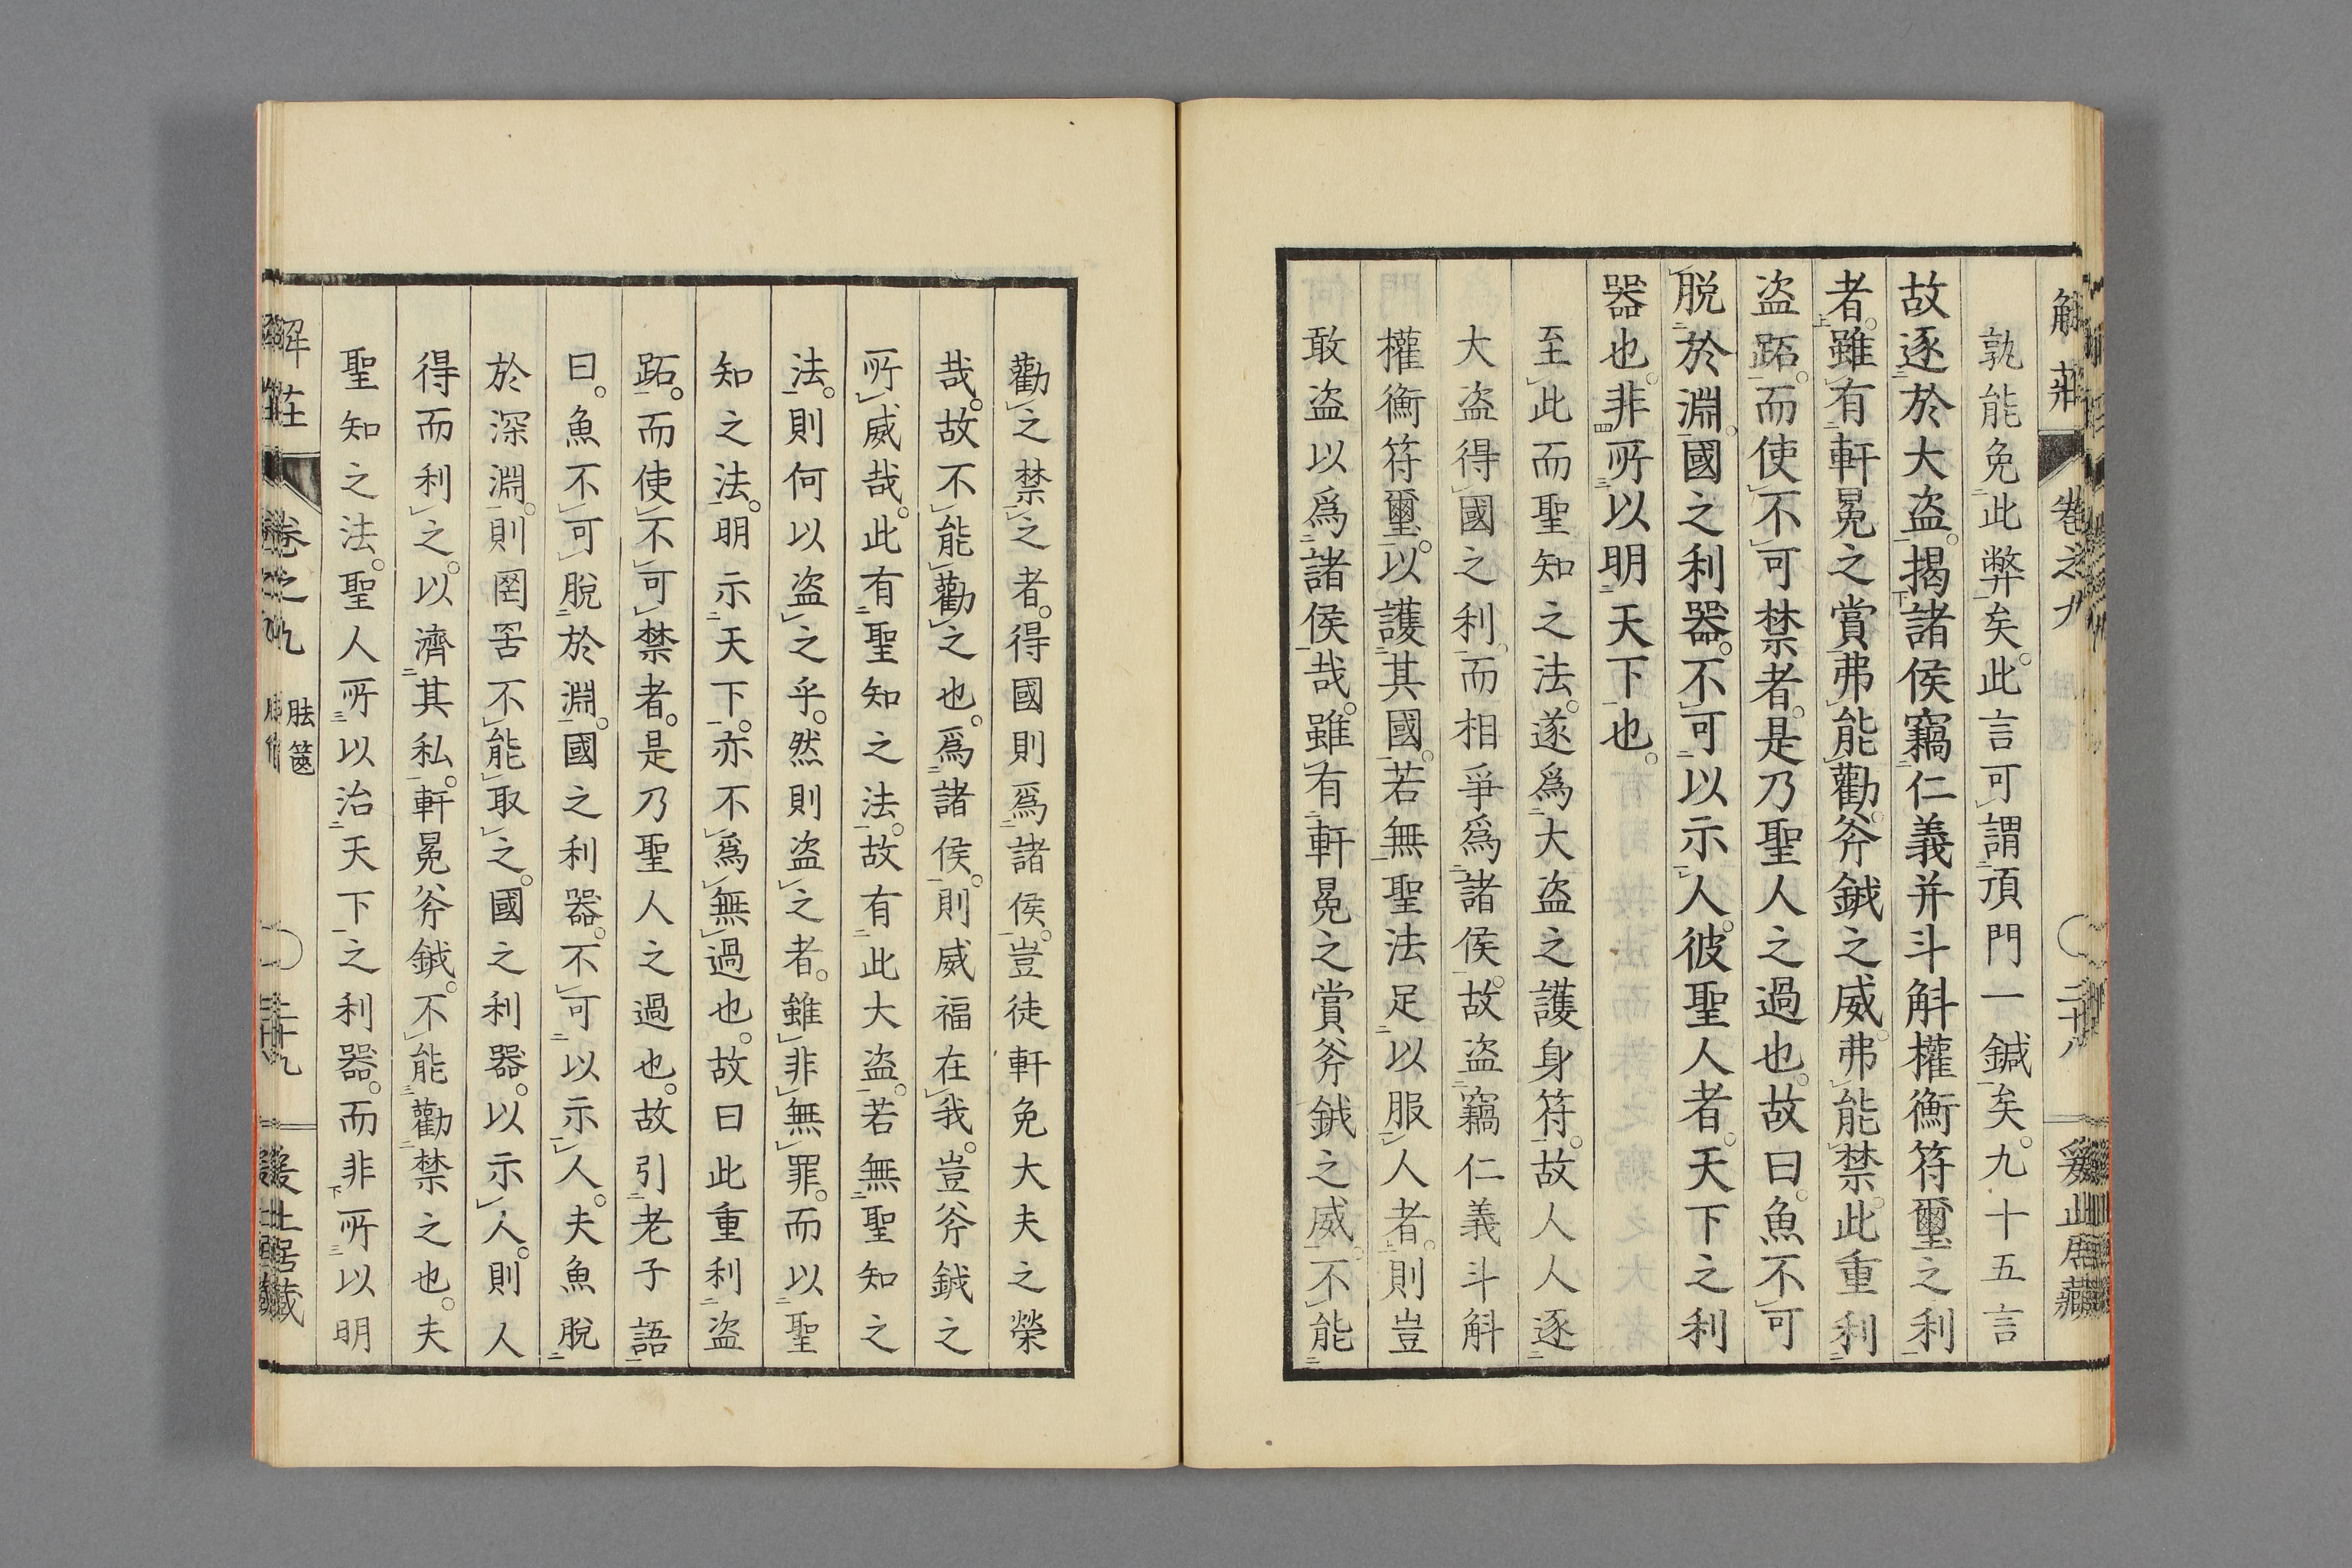 解莊 卷之九 二十八 爰止居藏
孰能免此弊矣。此言可謂頂門一鍼矣。九十五言
故逐於大盜。揭諸侯竊仁義并斗斛權衡符璽之利
者。雖有軒冕之賞弗能勸。斧鉞之威。弗能禁。此重利
盜跖。而使不可禁者。是乃聖人之過也。故曰。魚不可
脱於淵。國之利器。不可以示人。彼聖人者。天下之利
器也。非所以明天下也。
至此而聖知之法。遂爲大盜之護身符。故人人逐
大盜得國之利。而相爭爲諸侯。故盜竊仁義斗斛
權衡符璽。以護其國。若無聖法足以服人者。則豈
敢盜以爲諸侯哉。雖有軒冕之賞斧鉞之威。不能
勸之禁之者。得國則爲諸侯。豈徒軒免大夫之榮
哉。故不能勸之也。爲諸侯。則威福在我。豈斧鉞之
所威哉。此有聖知之法。故有此大盜。若無聖知之
法。則何以盜之乎。然則盜之者。雖非無罪。而以聖
知之法。明示天下。亦不爲無過也。故曰此重利盜
跖。而使不可禁者。是乃聖人之過也。故引老子語
曰。魚不可脫於淵。國之利器。不可以示人。夫魚脫
於深淵。則罔罟不能取之。國之利器。以示人。則人
得而利之。以濟其私。軒冕斧鉞。不能勸禁之也。夫
聖知之法。聖人所以治天下之利器。而非所以明
解莊 卷之九 胠篋 二十九 爰止居藏